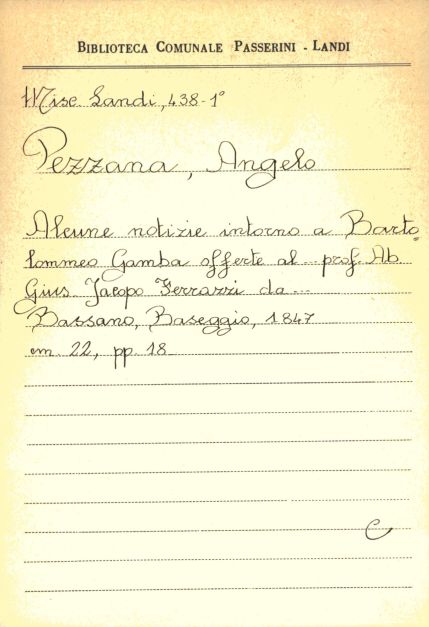 BIBLIOTECA COMUNALE PASSERINI - LANDI
Misc. Landi, 438-1°
Pezzana, Angelo
Alcune notizie intorno a Barto
lommeo Gamba offerte al... prof. Ab.
Gius. Jacopo Ferrazzi da...
Bassano, Baseggio, 1847
cm. 22, pp. 18
C